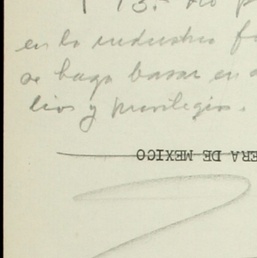 13.- no p
en la industria f
se haga basar en a
lios y privilegios.
ERA DE MEXICO